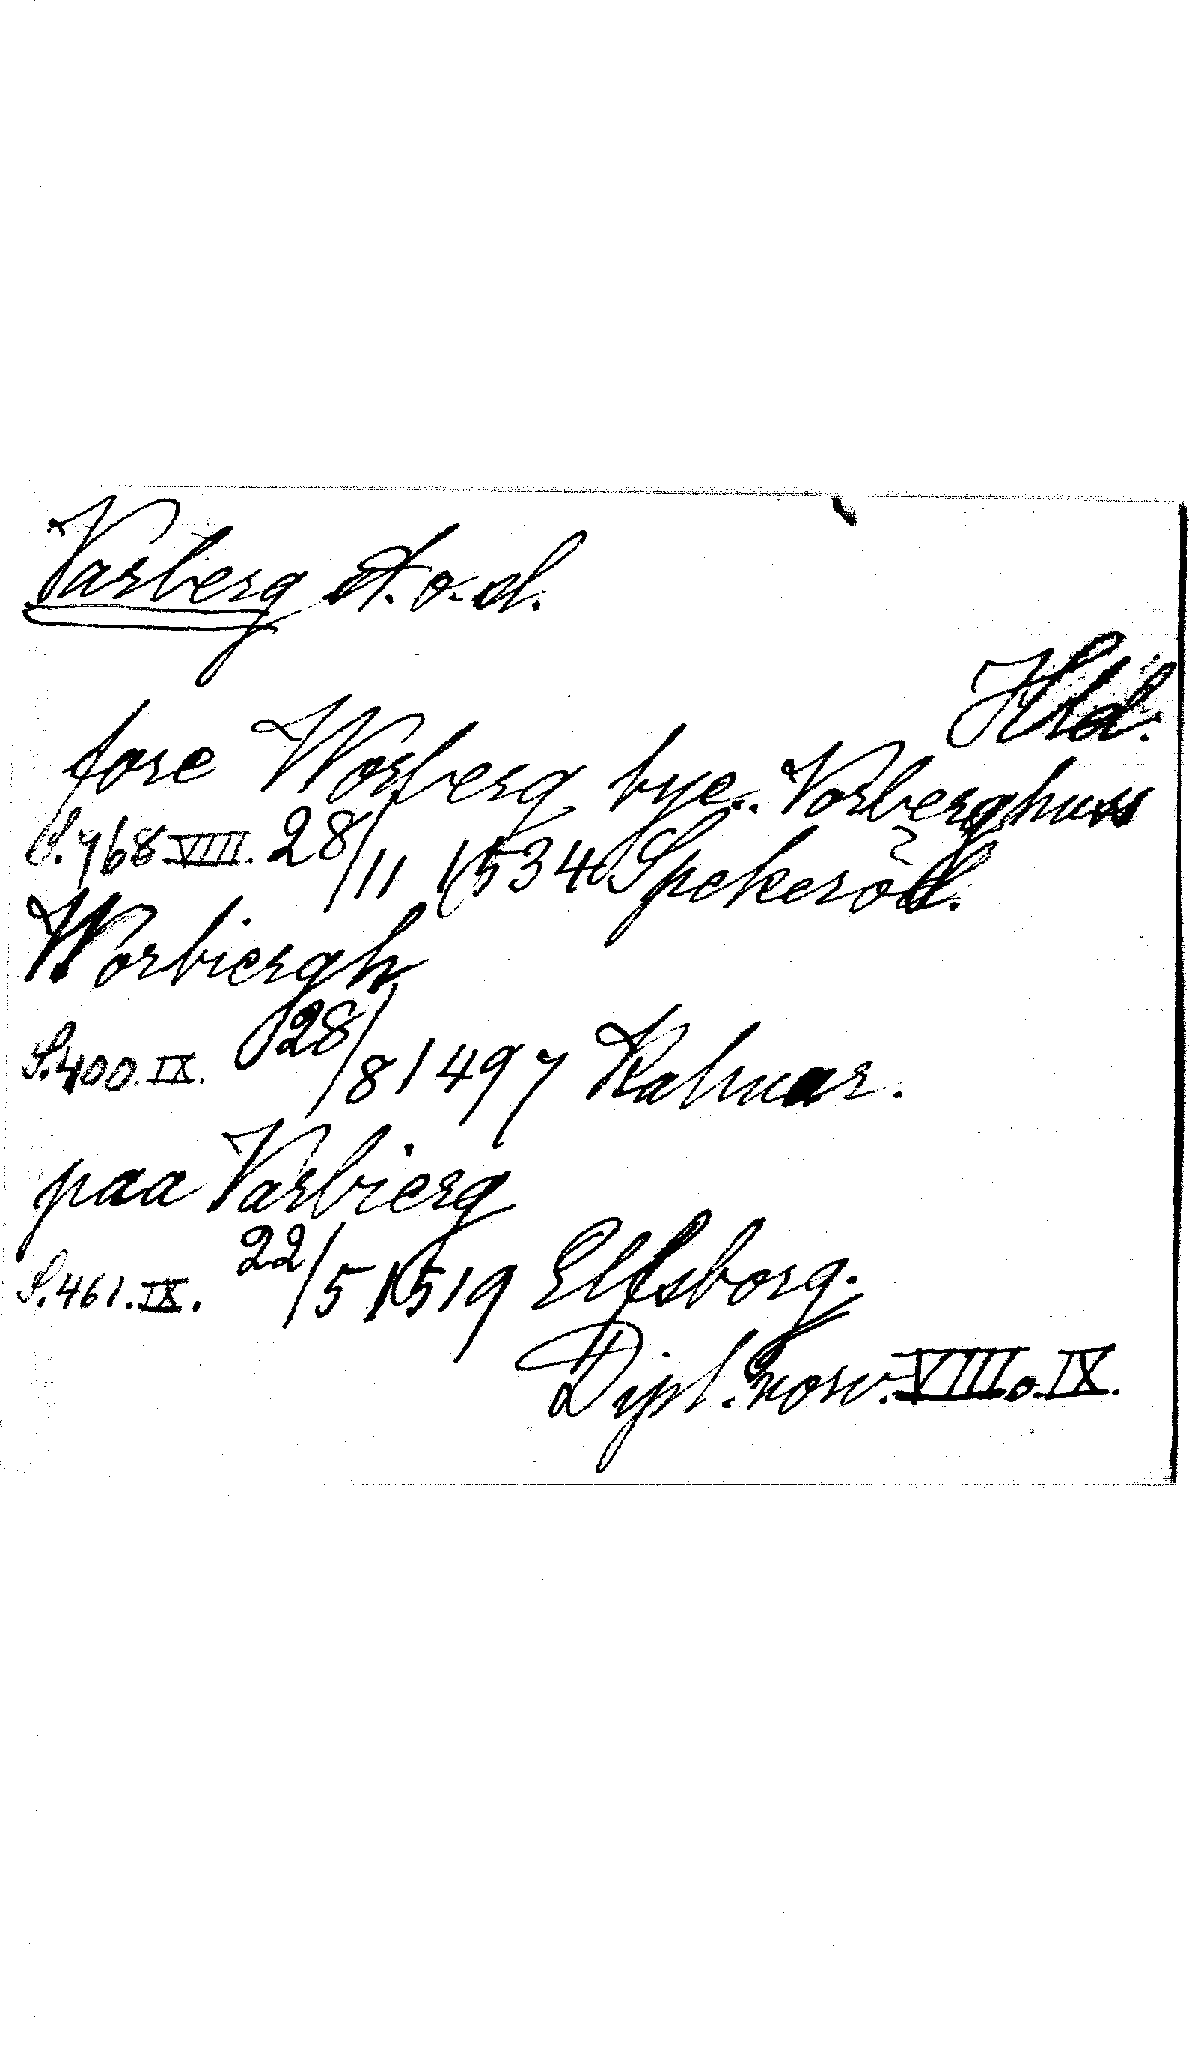 Varberg st. o. sl.
Hld.
fore Worberg bye.. Vorberghuss
S. 768 VIII. 28/11 1534 Spekeröd.
Worbiergh
S. 400. IX. 28/8 1497 Kalmar.
paa Varbierg
S. 461. IX. 22/5 1519 Elfsborg.
Dipl. norv. VIII o. IX.